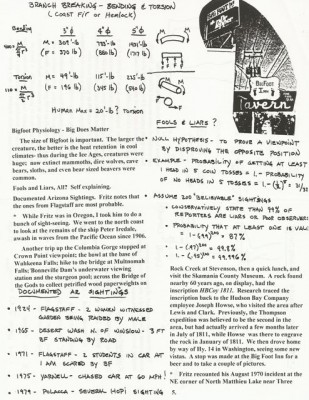 BRANCH BREAKING - BENDING & TORSION
(COAST FIR or HEMLOCK)
Bending
3"φ 4"φ 5"φ
M = 309'·lb
(F = 370 lb)
Torsion
M = 49'·lb 115'·lb 225'·lb
(F = 196 lb)
HUMAN MAX ≈ 20'·lb? TORSION
BIGFOOT
Tavern
Bigfoot Physiology - Big Does Matter
The size of Bigfoot is important. The larger the
creature, the better is the heat retention in cold
climates- thus during the Ice Ages, creatures were
huge; now extinct mammoths, dire wolves, cave
bears, sloths, and even bear sized beavers were
common.
Fools and Liars, All? Self explaining.
Documented Arizona Sightings. Fritz notes that
the ones from Flagstaff are most probable.
* While Fritz was in Oregon, I took him to do a
bunch of sight-seeing. We went to the north coast
to look at the remains of the ship Peter Iredale,
awash in waves from the Pacific Ocean since 1906.
Another trip up the Columbia Gorge stopped at
Crown Point viewpoint; the bowl at the base of
Wahkeena Falls; hike to the bridge at Multnomah
Falls; Bonneville Dam's underwater viewing
station and the sturgeon pool; across the Bridge of
the Gods to collect petrified wood paperweights on
DOCUMENTED AZ SIGHTINGS
• 1924 - FLAGSTAFF - 2 WOMEN WITNESSED
GARDEN BEING RAIDED BY MALE
• 1965 - DESERT WASH N. OF WINSLOW - 3 FT
BF STANDING BY ROAD
• 1971 - FLAGSTAFF - 2 STUDENTS IN CAR AT
1 AM SCARED BY BF
• 1975 - YARNELL - CHASED CAR AT 60 MPH!
• 1979 - POLACCA - SEVERAL HOPI SIGHTING
FOOLS & LIARS?
• NULL HYPOTHESIS - TO PROVE A VIEWPOINT
BY DISPROVING THE OPPOSITE POSITION
• EXAMPLE - PROBABILITY OF GETTING AT LEAST
1 HEAD IN 5 COIN TOSSES = 1 - PROBABILITY
OF NO HEADS IN 5 TOSSES = 1 - (½)⁵ = 31/32
• ASSUME 200 "BELIEVABLE" SIGHTINGS
• CONSERVATIVELY STATE THAT 99% OF
REPORTERS ARE LIARS OR POOR OBSERVERS
• PROBABILITY THAT AT LEAST ONE IS VALID
= 1 - (.99)²⁰⁰ = 87%
• 1 - (.97)²⁰⁰ = 99.8%
• 1 - (.95)²⁰⁰ = 99.996%
Rock Creek at Stevenson, then a quick lunch, and
visit the Skamania County Museum. A rock found
nearby 60 years ago, on display, had the
inscription HBCo 1811. Research traced the
inscription back to the Hudson Bay Company
employee Joseph Howse, who visited the area after
Lewis and Clark. Previously, the Thompson
expedition was believed to be the second in the
area, but had actually arrived a few months later
in July of 1811, while Howse was there to engrave
the rock in January of 1811. We then drove home
by way of Hy. 14 in Washington, seeing some new
vistas. A stop was made at the Big Foot Inn for a
beer and to take a couple of pictures.
* Fritz recounted his August 1970 incident at the
NE corner of North Matthieu Lake near Three
5.